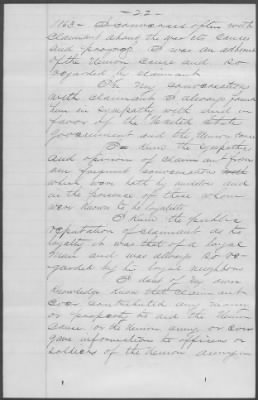 - 22 -
1863 - I conversed often with
claimant about the war its causes
and progress I was an adherent
of the Union cause and so
regarded by claimant
In my conversation
with claimant I always found
him in sympathy with and in
favor of the United State
Government and the Union cause
I knew the sympathy
and opinion of claimant from
our frequent conversations
which were both by ourselves and
in the presence of those whom
were known to be loyalists
I knew the public
reputation of claimant as to
loyalty it was that of a loyal
man and was always so re-
garded by his loyal neighbors
I does of my own
knowledge know that claimant
ever contributed any money
or property to aid the Union
cause or the Union army or ever
gave information to officers or
soldiers of the Union army in